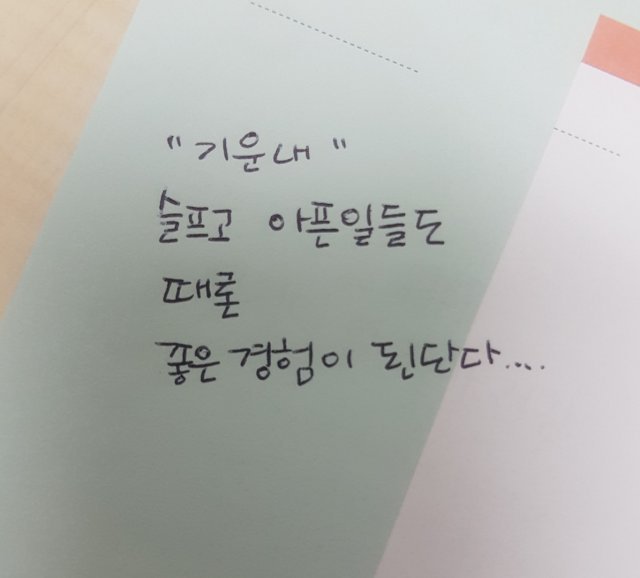 "기운내"
슬프고 아픈일들도
때론
좋은 경험이 된단다...